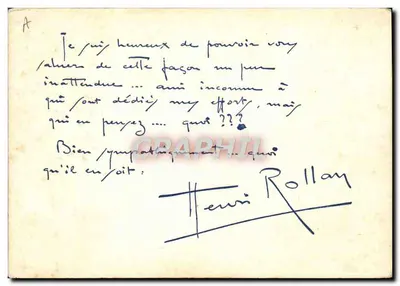 A
Je suis heureux de pouvoir vous
saluer de cette façon un peu
inattendue ... ami inconnu à
qui sont dédiés mes efforts, mais
qui en pensez .... quoi ???
Bien sympathiquement .. quoi
qu'il en soit,
Henri Rollan